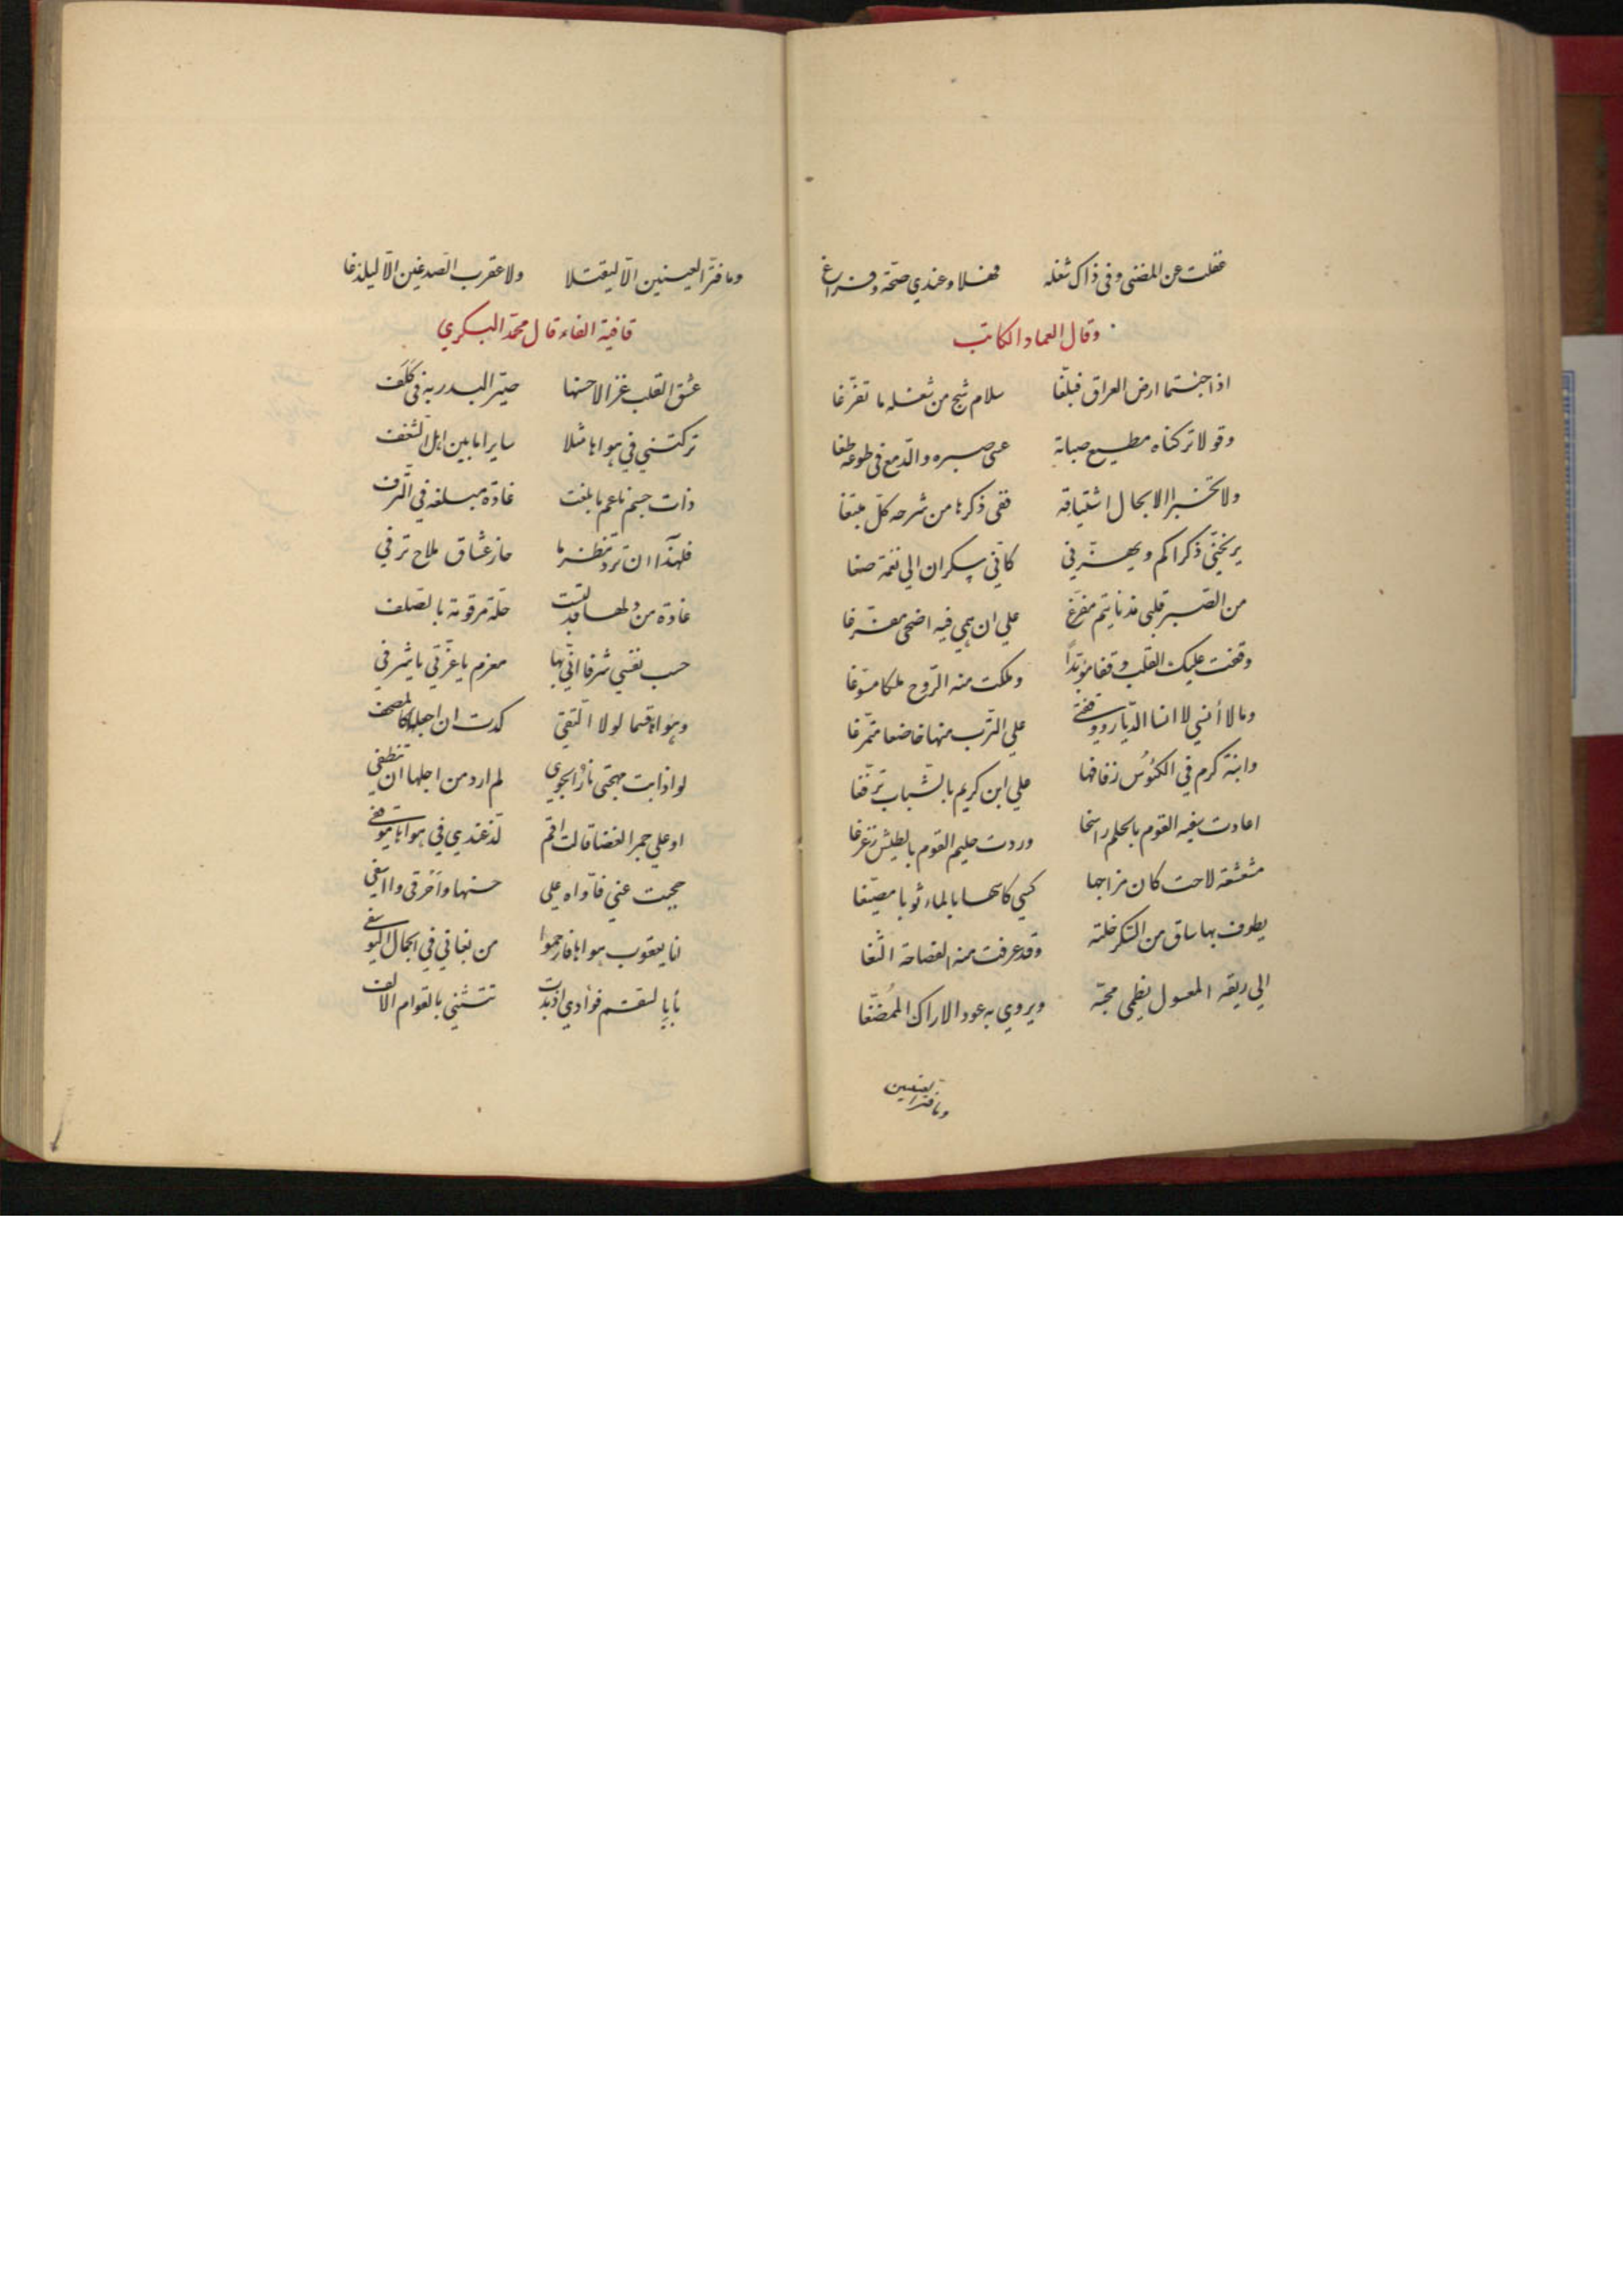 غفلت عن المضنى وفي ذاك شغله فهلا وعندي صحّة وفراغ
وقال العماد الكاتب
اذا جئتما ارض العراق فبلّغا سلام شج من شغله ما تفرّغا
وقولا تركناه مطيع صبابة عصى صبره والدمع في طوعه طغا
ولا تخبرا الا بحال اشتياقه ففي ذكرها من شرحه كلّ مبتغا
يرنحنّي ذكراكم ويهزّني كأنّي سكران الي نغمة صغا
من الصبر قلبي مذ نايتم مفرّغ علي ان همي فيه اضحى مفرّغا
وقفت عليك القلب وقفا موبّدًا وملكت منه الرّوح ملكا مسوّغا
وما لا أنسي لا انسا الديار ووقفتي علي التّرب منها خاضعا متمرّغا
وابنة كرم في الكئوس زفافها علي ابن كريم بالشباب ترفّغا
اعادت سفيه القوم بالحلم راسخا وردت حليم القوم بالطيش نزّغا
مشعشعة لاحت كان مزاجها كسي كاسها بالماء ثوبا مصبّغا
يطوف بها ساق من السّكر خلته وقد عرفت منه الفصاحة الثغا
الي ريقه المعسول يظمى محبّه ويروي به عود الاراك الممضّغا
وما فتر العينين
وما فتّر العينين الّا ليقتلا ولا عقرب الصدغين الّا ليلدغا
قافية الفاء قال محمّد البكري
عشق القلب غزالا حسنها حيّر البدر به في كلف
تركتني في هواها مثلا سايرا ما بين اهل الشغف
ذات جسم ناعم ما بلغت غادة مبلغه في التّرف
فلهذا ان ترد تنظرها حار عشاق ملاح ترفي
غادة من دلها قد لبست حلّة مرقومة بالصّلف
حسب نفسي شرفا انّي بها مغرم يا عزّتي يا شرفي
وهواها قسما لولا التّقي كدت ان اجعلها كالمصحف
لو اذابت مهجتي نار الجوي لم ارد من اجلها ان تنطفي
او علي جمر الغضا قالت اقم لذ عندي في هواها موقفي
حجبت عني فآواه علي حسنها واحُرقي وااسفي
انا يعقوب هواها فارحموا من بغاني في الجمال اليوسفي
بأبي لسقم فوادي اذ بدت تتثني بالقوام الالف